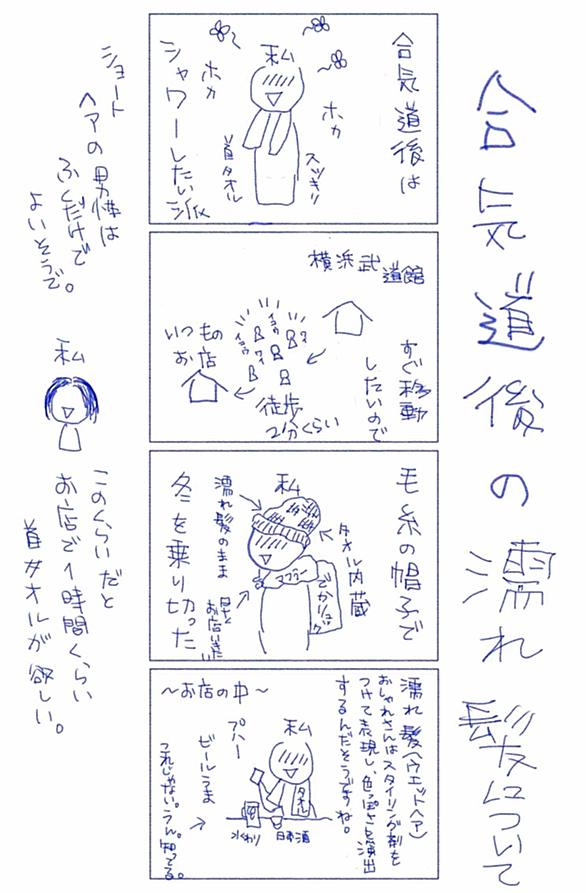 合気道後の濡れ髪について
合気道後は
私
ホカ
ホカ
スッキリ
首タオル
シャワーしたい派
横浜武道館
すぐ移動
したいので
イコウ
イコウ
ワイ
ワイ
いつもの
お店
徒歩
2分くらい
毛糸の帽子で
私
タオル内蔵
濡れ髪のまま
マフラー
でかリュック
早くお店いきたい
冬を乗り切った
濡れ髪(ウエットヘア)
おしゃれさんはスタイリング剤を
つけて表現し、色っぽさを演出
するんだそうですね。
〜お店の中〜
私
プハー
ビールうま
タオル
水くわり
日本酒
これじゃない。うん。知ってる。
ショート
ヘアの男性は
ふくだけで
よいそうで。
私
このくらいだと
お店で1時間くらい
首タオルが欲しい。